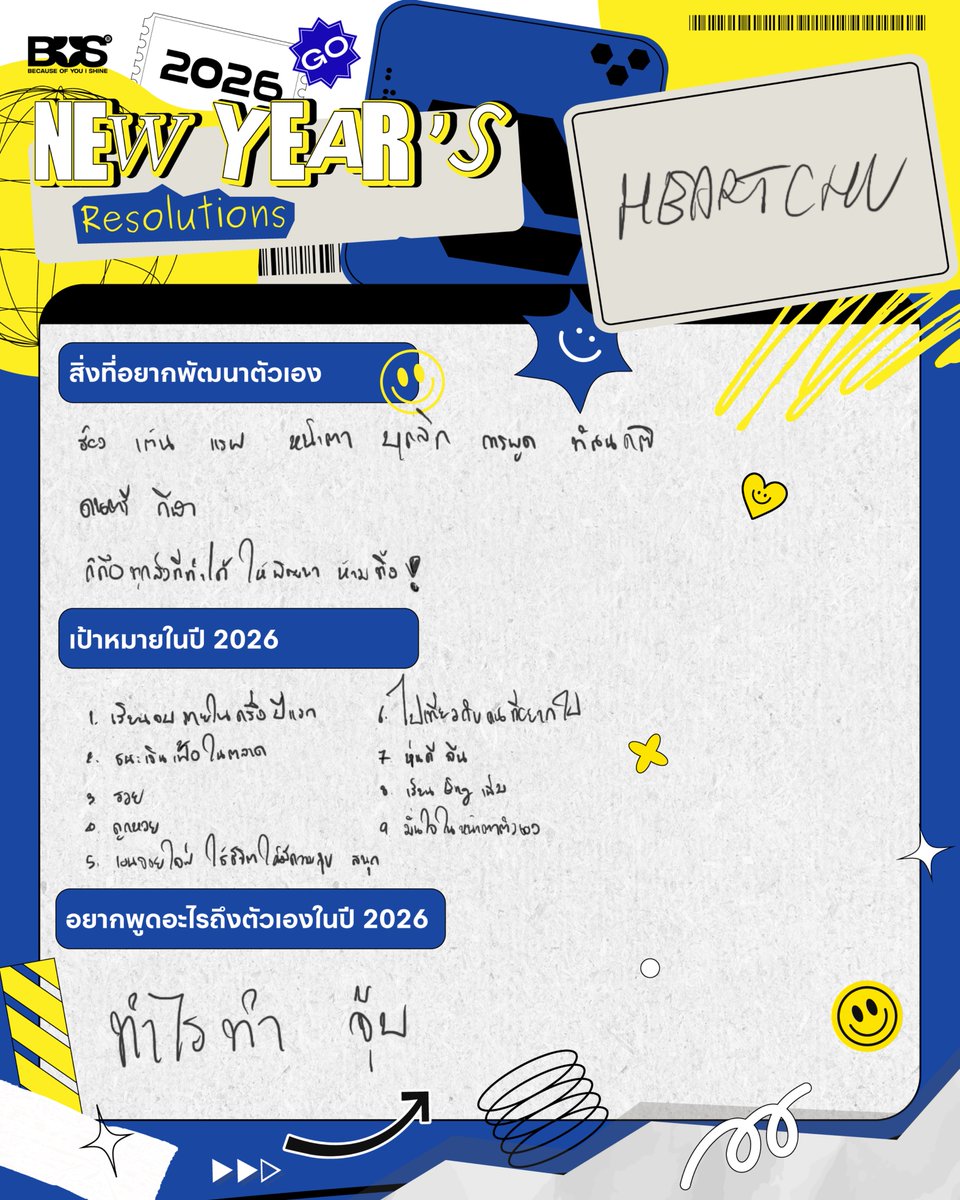 BUS
BECAUSE OF YOU I SHINE
2026
GO
NEW YEAR'S
Resolutions
HEARTCHU
สิ่งที่อยากพัฒนาตัวเอง
ร้อง เต้น แรพ หน้าตา บุคลิก การพูด ทัศนคติ
ดนตรี กีฬา
ก็คือทุกสิ่งที่ทำได้ ให้พัฒนา ห้ามทื่อ!
เป้าหมายในปี 2026
1. เรียนจบภายในครึ่งปีแรก
2. ชนะเงินเฟ้อในตลาด
3 รวย
4. ถูกหวย
5. ใช้ชีวิตให้มีความสุข สนุก
6. ไปเที่ยวกับคนที่อยากไป
7 หุ่นดี ลีน
8 เรียน Eng เพิ่ม
9 มั่นใจในหน้าตาตัวเอง
อยากพูดอะไรถึงตัวเองในปี 2026
ทำไรทำ จุ๊บ